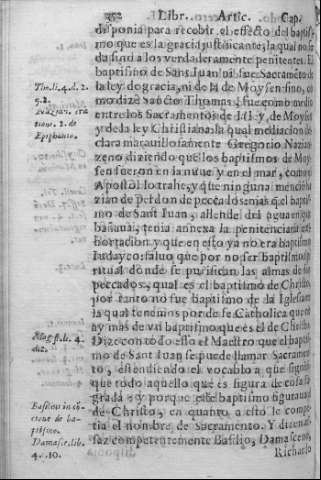 352 Libr. Artic. Cap.
disponia para recebir el effecto del baptis-
mo que es la gracia justificante, la qual no se
da sino a los verdaderamente penitentes. El
baptismo de Sant Juan ni fue Sacramẽto de
la ley de gracia, ni de la de Moysen sino, co
mo dize Sancto Thomas, fue como medio
entre los Sacramentos de la ley, de Moysen
y de la ley Christiana: la qual mediacion de
clara marauillosamente Gregorio Nazian
zeno diziendo que los baptismos de Moy-
sen fueron en la nuue y en el mar, como el
Apostol lo trahe, y que ninguna mencion
de perdon de peccados
mo de Sant Juan, allende del agua en que
bañaua, tenia annexa la penitencia
hortacion y que en esto ya no era baptismo
Judayco: saluo que por no ser baptismo spi
ritual donde se purifican las almas de los
peccados, qual es el baptismo de Christo,
por tanto no fue baptismo de la Iglesia
la qual tenemos por de fe Catholica que no
ay mas de vn baptismo que es el de Christo
Dize con todo esto el Maestro que el baptis
mo de Sant Juan se puede llamar Sacramen
to, estendiendo el vocablo a que signifi
que todo aquello que es figura de cosa sa
grada: y porque este baptismo figuraua el
de Christo, en quanto a esto le compe
tia el nombre de Sacramento. Y dizenlo
assaz competentemente Basilio, Damasceno,
Richardo
Tho. li. 4. d. 2.
q. 2.
Nazian. ora
tione. 2. de
Epiphania.
Mag. st. li. 4.
di. 2.
Basilius in ho
tione de ba-
ptismo.
Damasc. lib.
4. c. 10.